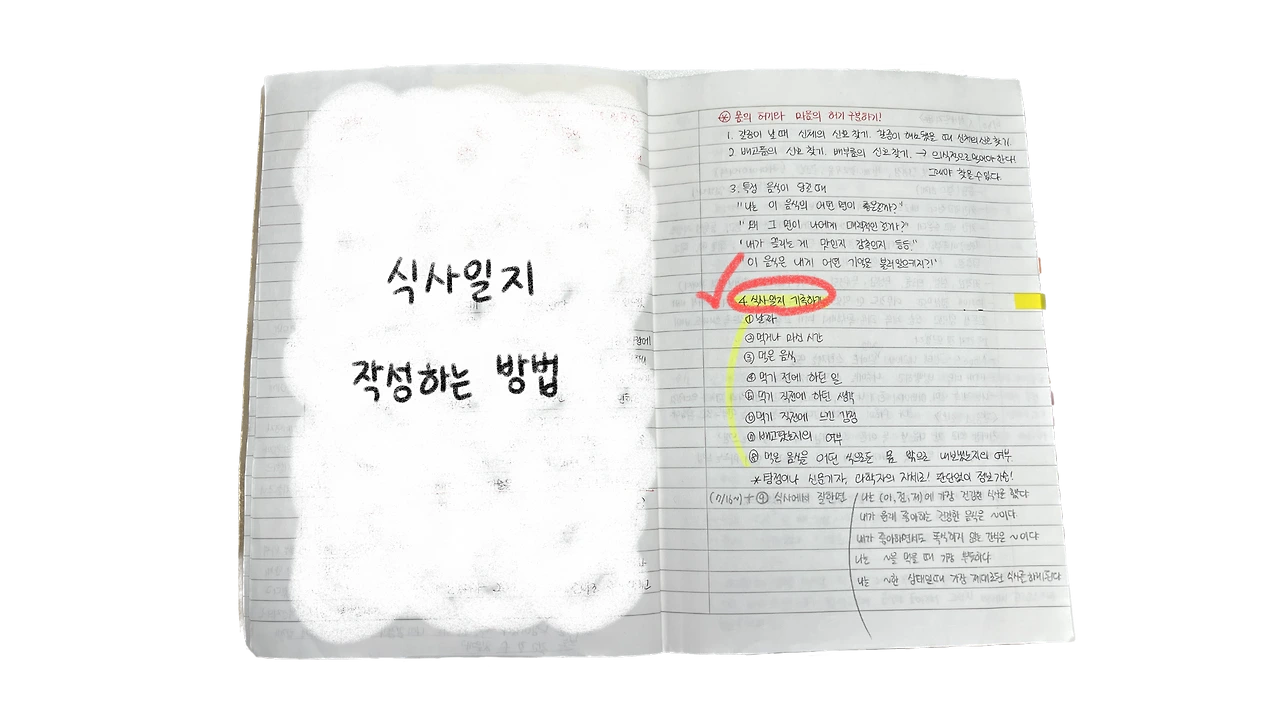 식사일지
작성하는 방법
※ 몸의 허기와 마음의 허기 구분하기!
1. 갈증이 날 때 신체의 신호 찾기. 갈증이 해소됐을 때 신체의 신호 찾기.
2 배고픔의 신호 찾기. 배부름의 신호 찾기. → 의식적으로 먹어야 한다!
그래야 찾을 수 있다.
3. 특정 음식이 당길 때
"나는 이 음식의 어떤 면이 좋은걸까?"
"왜 그 면이 나에게 매력적인걸까?"
"내가 끌리는 게 맛인지 감촉인지 등등."
"이 음식은 내게 어떤 기억을 불러일으키지?!"
4. 식사일지 기록하기
① 날짜
② 먹거나 마신 시간
③ 먹은 음식
④ 먹기 전에 하던 일
⑤ 먹기 직전에 하던 생각
⑥ 먹기 직전에 느낀 감정
⑦ 배고팠는지의 여부
⑧ 먹은 음식을 어떤 식으로든 몸 밖으로 내보냈는지의 여부
* 탐정이나 신문기자, 과학자의 자세로! 판단없이 정보기술!
(7/16~) + ⑨ 식사에서 잘한면
나는 (아,점,저)에 가장 건강한 식사를 했다
내가 좋아하는 건강한 음식은 ~이다
내가 좋아하면서도 폭식하지 않는 간식은 ~이다
나는 ~을 먹을 때 가장 뿌듯하다
나는 ~한 상태일때 가장 제대로된 식사를 하게된다